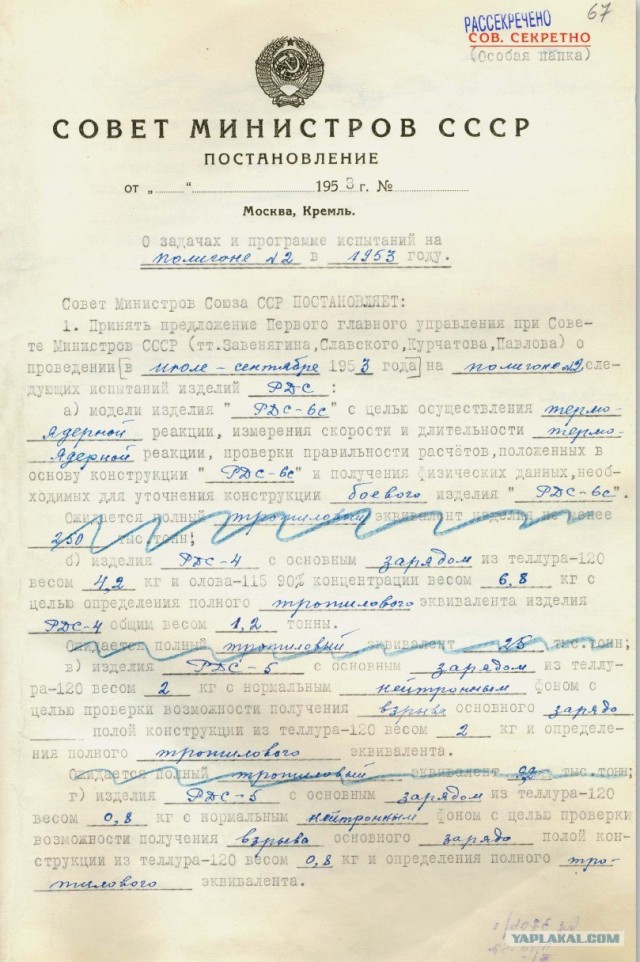 РАССЕКРЕЧЕНО
67
СОВ. СЕКРЕТНО
(Особая папка)
СОВЕТ МИНИСТРОВ СССР
ПОСТАНОВЛЕНИЕ
от „ “ 1953 г. №
Москва, Кремль.
О задачах и программе испытаний на
полигоне №2 в 1953 году.
Совет Министров Союза ССР ПОСТАНОВЛЯЕТ:
1. Принять предложение Первого главного управления при Сове-
те Министров СССР (тт.Завенягина,Славского,Курчатова,Павлова) о
проведении [в июле-сентябре 1953 года] на полигоне №2 сле-
дующих испытаний изделий РДС :
а) модели изделия "РДС-6с" с целью осуществления термо-
ядерной реакции, измерения скорости и длительности термо-
ядерной реакции, проверки правильности расчётов,положенных в
основу конструкции "РДС-6с" и получения физических данных,необ-
ходимых для уточнения конструкции боевого изделия "РДС-6с".
Ожидается полный тротиловый эквивалент изделия не менее
250 тыс.тонн;
б) изделия РДС-4 с основным зарядом из теллура-120
весом 4,2 кг и олова-115 90% концентрации весом 6,8 кг с
целью определения полного тротилового эквивалента изделия
РДС-4 общим весом 1,2 тонны.
Ожидается полный тротиловый эквивалент 25 тыс.тонн;
в) изделия РДС-5 с основным зарядом из теллу-
ра-120 весом 2 кг с нормальным нейтронным фоном с
целью проверки возможности получения взрыва основного зарядо
полой конструкции из теллура-120 весом 2 кг и определе-
ния полного тротилового эквивалента.
Ожидается полный тротиловый эквивалент тыс.тонн;
г) изделия РДС-5 с основным зарядом из теллура-120
весом 0,8 кг с нормальным нейтронным фоном с целью проверки
возможности получения взрыва основного зарядо полой кон-
струкции из теллура-120 весом 0,8 кг и определения полного тро-
тилового эквивалента.
YAPLAKAL.COM